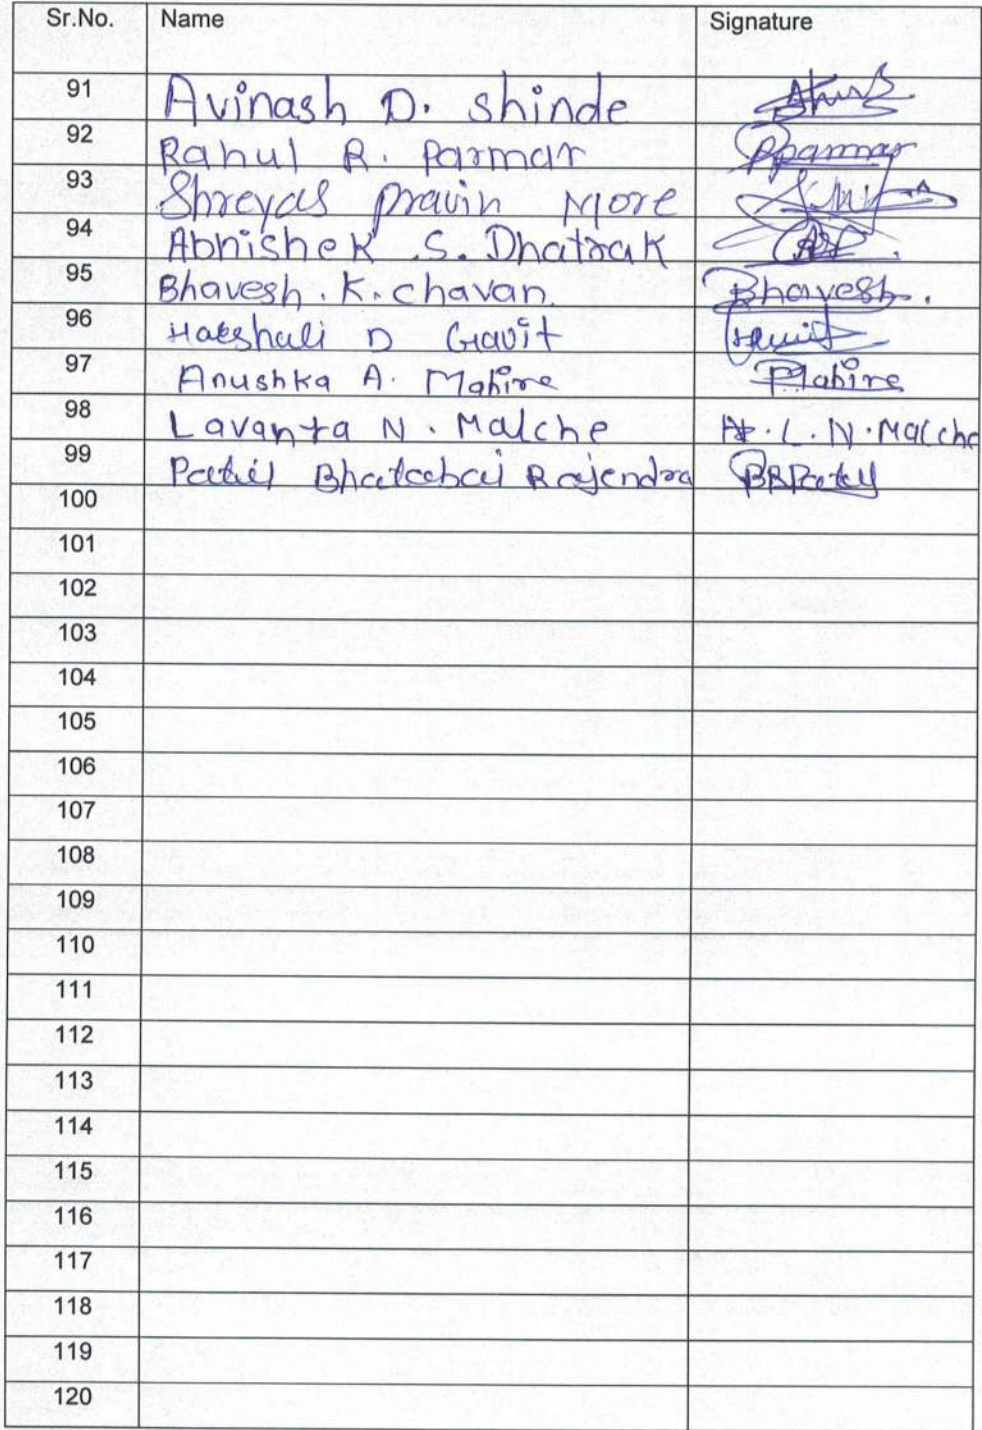 Sr.No. Name Signature
91 Avinash D. Shinde
92 Rahul R. Parmar Rparmar
93 Shreyas Pravin More
94 Abhishek .S. Dhatrak
95 Bhavesh . K. chavan. Bhavesh.
96 Harshali D Gavit Gavit
97 Anushka A. Mahire Mahire
98 Lavanya N. Malche L. N. Malche
99 Patil Rajendra BRPatil
100
101
102
103
104
105
106
107
108
109
110
111
112
113
114
115
116
117
118
119
120